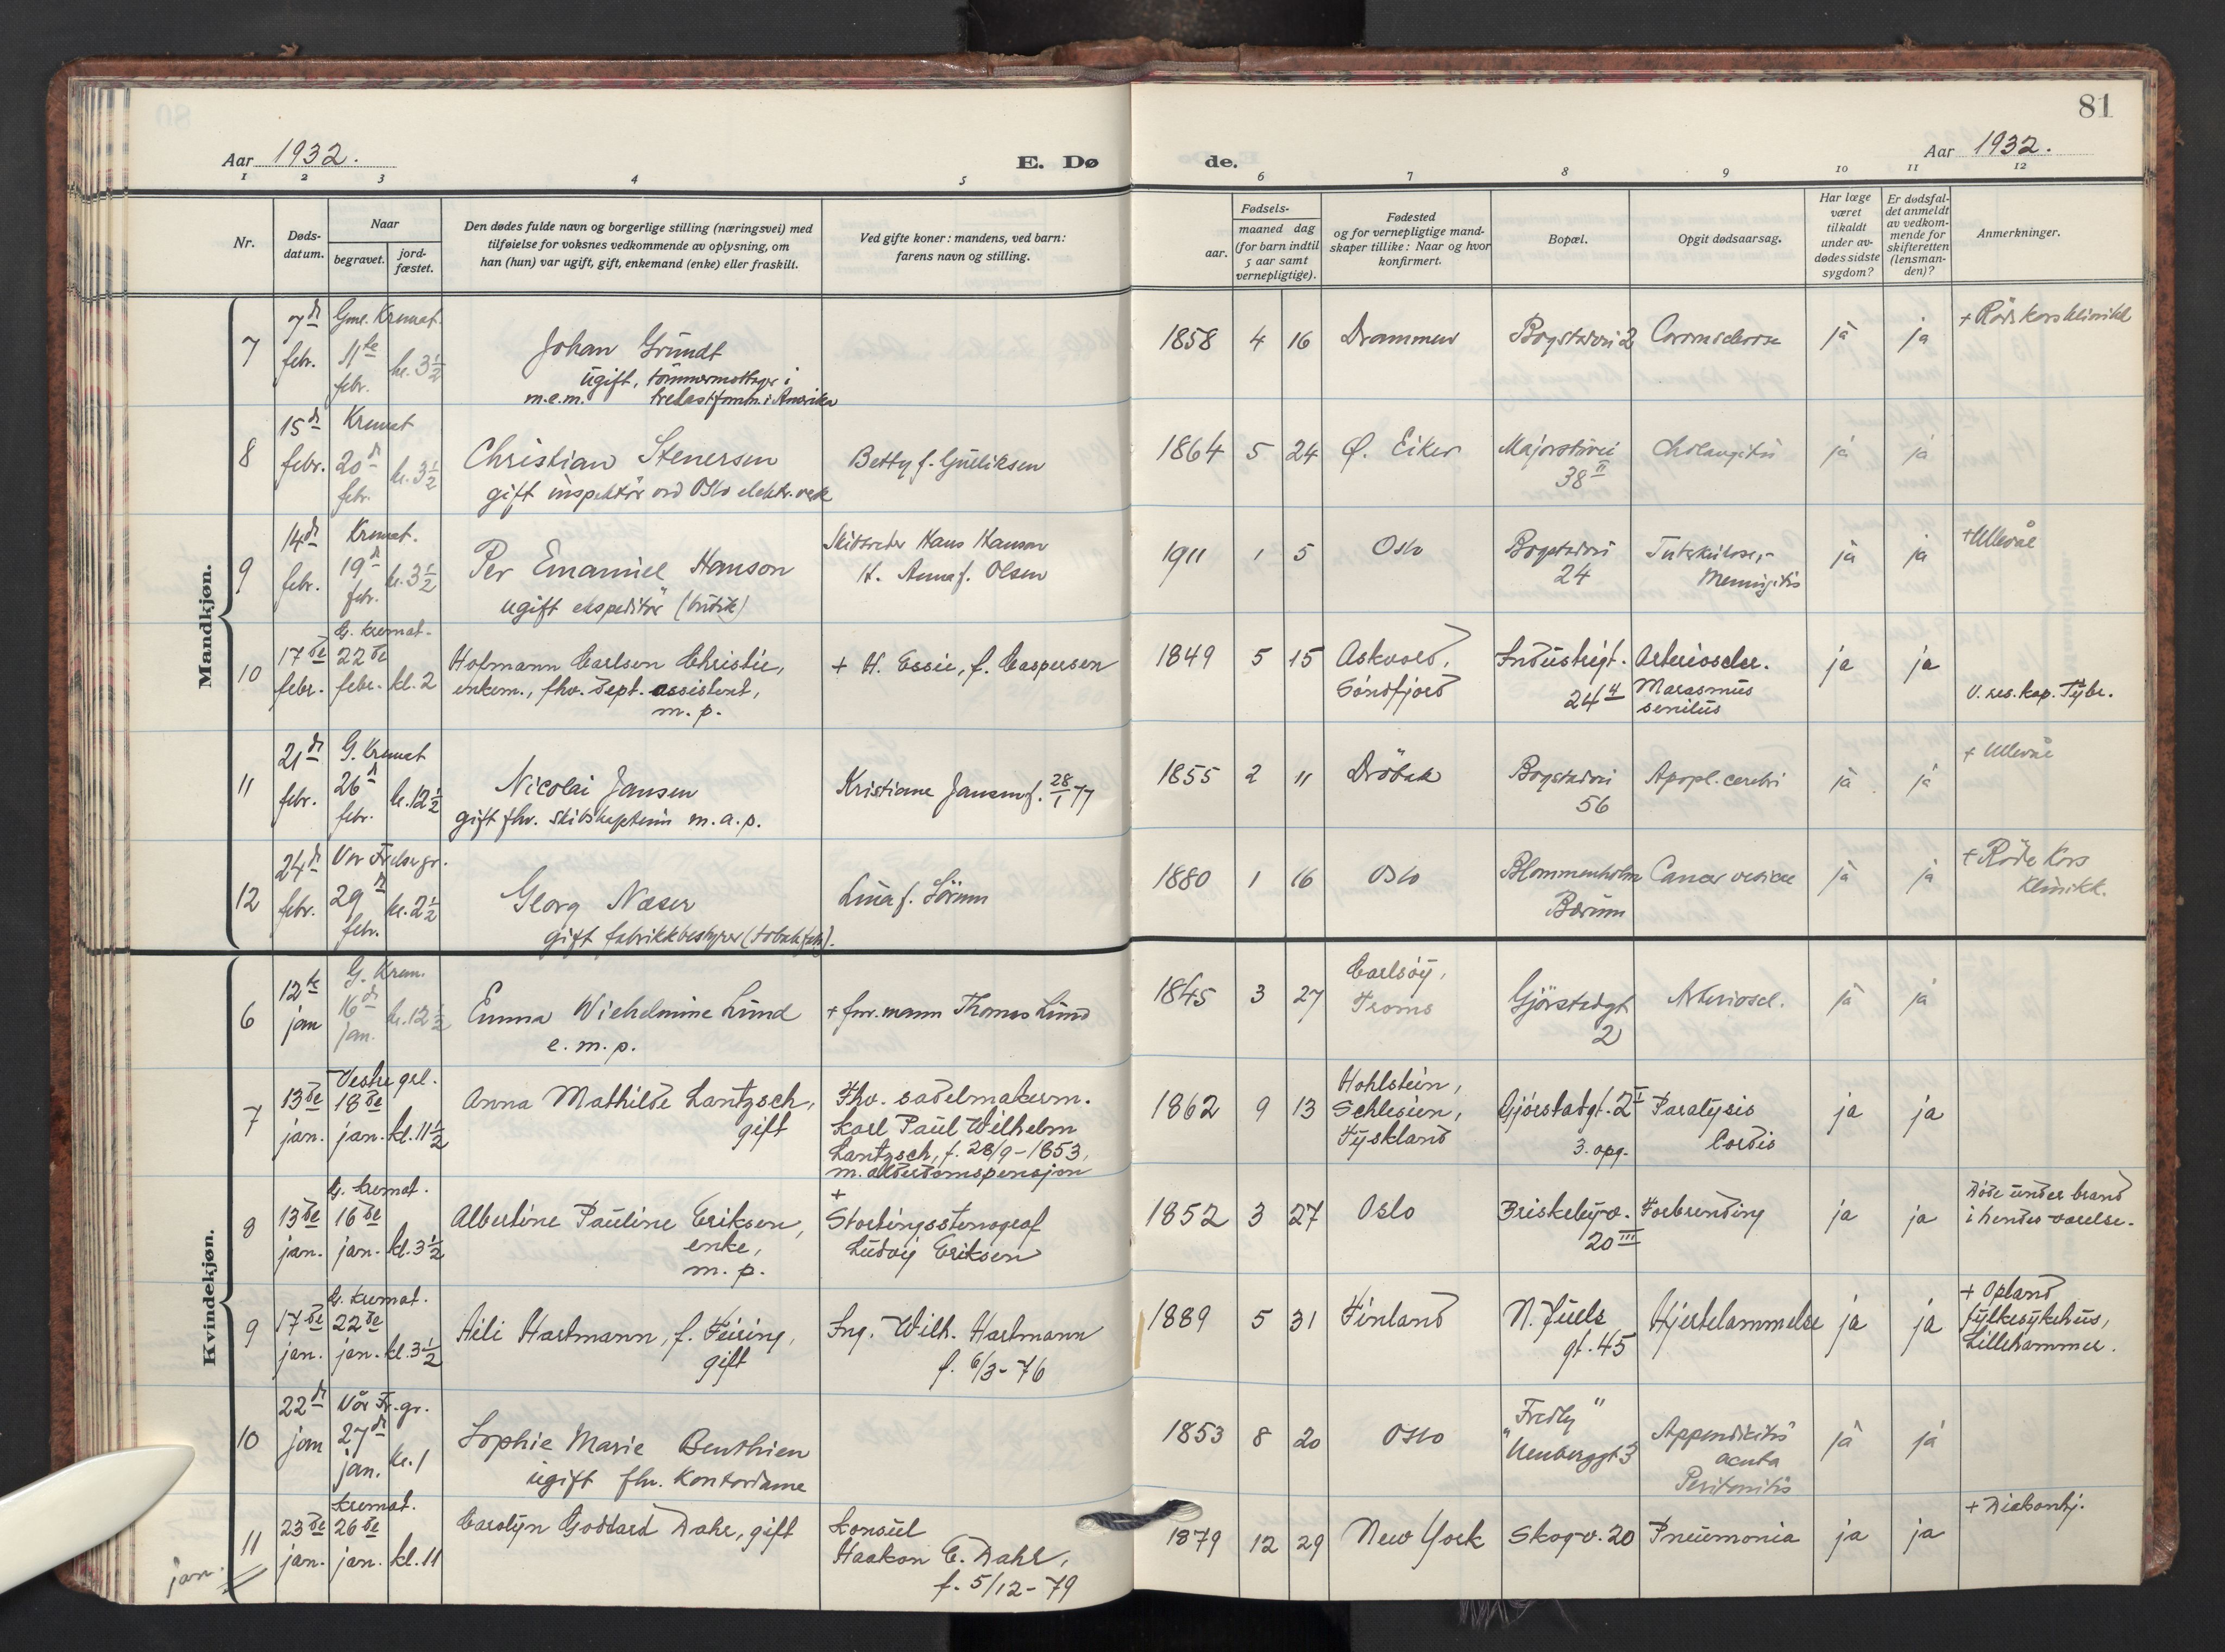 80
81
Aar 1932.
E. Dø
de.
Aar 1932.
1 2 3 4 5 6 7 8 9 10 11 12
Nr.
Døds-
datum.
Naar
begravet.
jord-
fæstet.
Den dødes fulde navn og borgerlige stilling (næringsvei) med
tilføielse for voksnes vedkommende av oplysning, om
han (hun) var ugift, gift, enkemand (enke) eller fraskilt.
Ved gifte koner: mandens, ved barn:
farens navn og stilling.
Fødsels-
aar.
maaned dag
(for barn indtil
5 aar samt
vernepligtige).
Fødested
og for vernepligtige mand-
skaper tillike: Naar og hvor
konfirmert.
Bopæl.
Opgit dødsaarsag.
Har læge
været
tilkaldt
under av-
dødes sidste
sygdom?
Er dødsfal-
det anmeldt
av vedkom-
mende for
skifteretten
(lensman-
den)?
Anmerkninger.
Mandkjøn.
7
7d febr.
Gml. Kremat.
11te febr.
kl. 3½
Johan Grundt
ugift, tømmermottager i
m.e.m. i Amerika
1858 4 16
Drammen
Bogstadvei 2
ja
ja
+ Røde kors klinikk
8
15d febr.
Kremat
20d febr.
kl. 3½
Christian Stenersen
gift inspektör ved Oslo elektr.verk
Betty f. Gulliksen
1864 5 24
Ø. Eiker
Majorstuvei
38 II
Cholangitis
ja
ja
9
14d febr.
Kremat.
19d febr.
kl. 3½
Per Emanuel Hanson
ugift ekspeditör (butik)
Hans Hanson
H. Anna f. Olsen
1911 1 5
Oslo
Bogstadvei
24
Tuberkulose,-
Meningitis
ja
ja
+ Ullevål
10
17de febr.
G. kremat.
22de febr.
kl. 2
Hofmann Carlson Christie,
enkem., fhv. dept. assistent,
m. p.
+ H. Essie, f. Caspersen
1849 5 15
Askvold,
Söndfjord
Industrigt.
24 4
Arterioscler.
Marasmus
senilis
ja
ja
V. res. kap. Tybr.
11
21d febr.
G. Kremat
26d febr.
kl. 12½
Nicolai Jansen
gift fhv. skibskaptein m.a.p.
Kristiane Jansen f. 28/1 77
1855 2 11
Dröbak
Bogstadvei
56
Apopl. cerebri
ja
ja
+ Ullevål
12
24d febr.
Vor Frelsergr.
29d febr.
kl. 2½
Georg Næser
gift fabrikkbestyrer (tobakfabr).
Lina f. Sörum
1880 1 16
Oslo
Blommenholm
Bærum
Cancer vesicae
ja
ja
+ Röde Kors
klinikk.
Kvindekjøn.
6
12te jan
G. Krem.
16d jan.
kl. 12½
Emma Wilhelmine Lund
e. m. p.
+ fmr. mann Thomas Lund
1845 3 27
Carlsöy,
Troms
Gjörstadgt
2
Arterioscl.
ja
ja
7
13de jan.
Vestre grl.
18de jan.
kl. 11½
Anna Mathilde Lantzsch,
gift
Fhv. sadelmakerm.
Karl Paul Wilhelm
Lantzsch, f. 28/9-1853,
m. alderdomspensjon
1862 9 13
Hohlstein,
Schlesien,
Tyskland
Gjörstadgt. 2 I
3. opg.
Paralysis
Cordis
ja
ja
8
13de jan.
G. kremat.
16de jan.
kl. 3½
Albertine Pauline Eriksen,
enke,
m. p.
+
Stortingsstenograf
Ludvig Eriksen
1852 3 27
Oslo
Briskebyv.
20 III
Forbrending
ja
ja
Döde under brand
i hendes værelse.
9
17de jan.
G. kremat.
22de jan.
kl. 3½
Aili Hartmann, f. Feiring,
gift
Ing. Wilh. Hartmann
f. 6/3-76
1889 5 31
Finland
N. Juels
gt. 45
Hjertelammelse
ja
ja
+ Opland
fylkesykehus,
Lillehammer.
10
22d jan
Vår Fr. gr.
27d jan.
kl. 1
Sophie Marie Benthien
ugift fhv. Kontordame
1853 8 20
Oslo
"Fredly"
3
Appendicitis
acuta
Peritonitis
ja
ja
11
23de jan.
kremat.
26de jan.
kl. 11
Carolyn Goddard Dahl, gift
Konsul
Haakon C. Dahl,
f. 5/12-79
1879 12 29
New York
Skogv. 20
Pneumonia
ja
ja
+ Diakonhj.
jan.